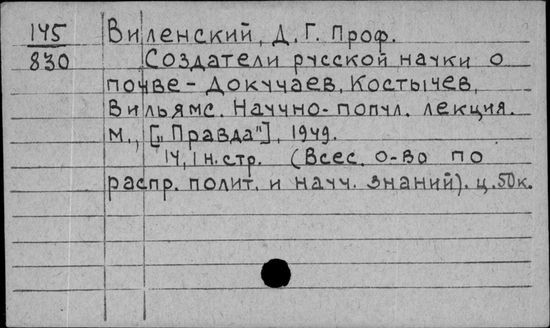 145 Виленский, Д. Г. Проф.
830 Создатели русской науки о
почве - Докучаев, Костычев,
Вильямс. Научно-попул. лекция.
М., ["Правда"], 1949.
14, 1 н. стр. (Всес. о-во по
распр. полит. и науч. знаний). ц. 50 к.